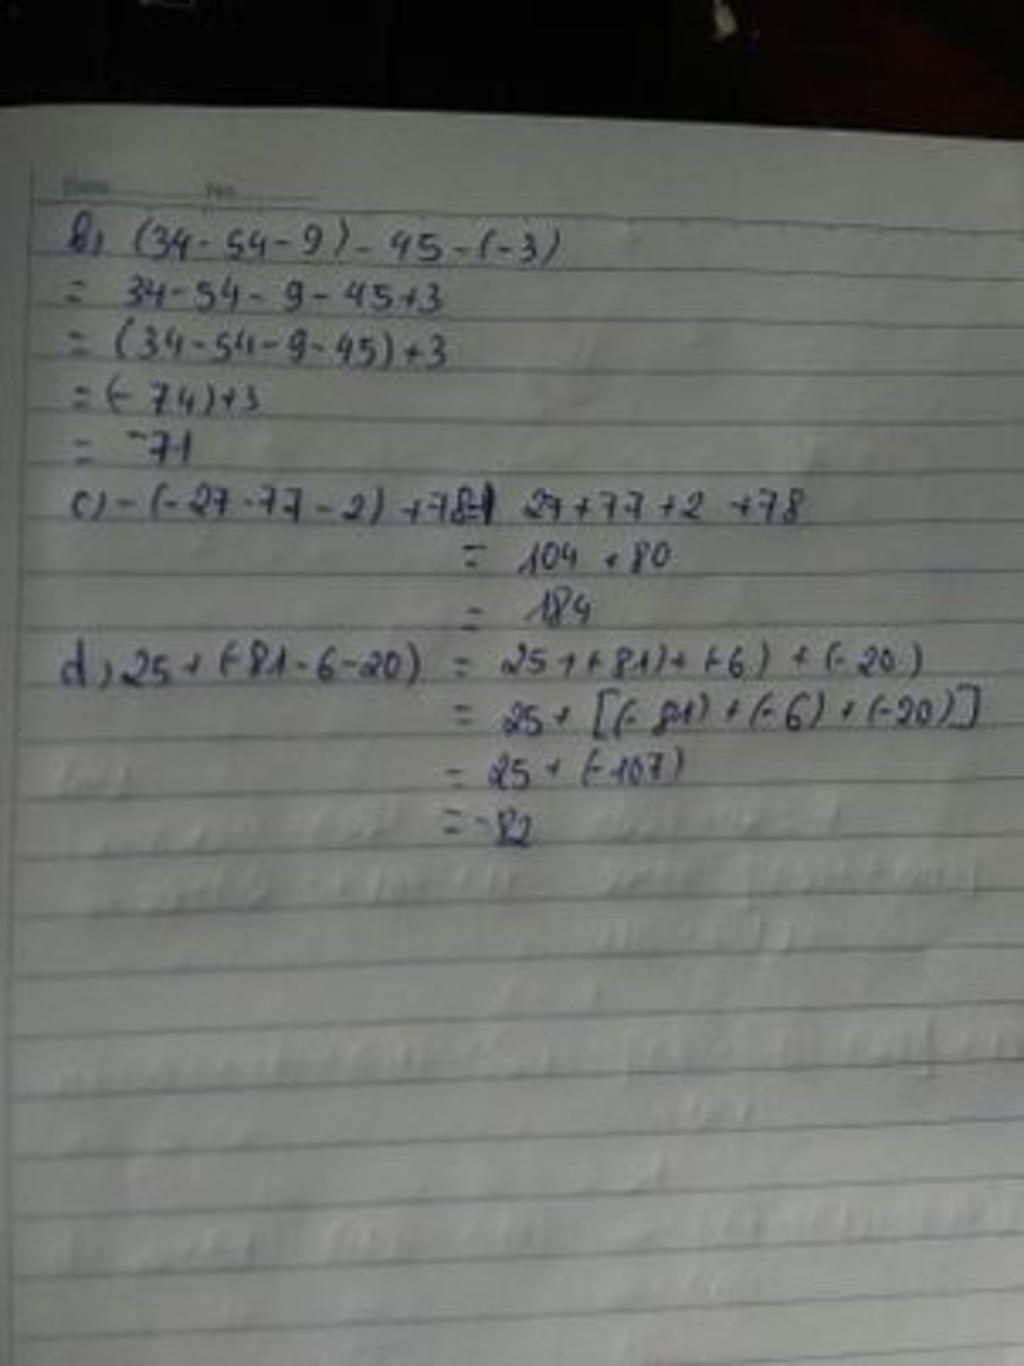 No
b, (34 - 54 - 9) - 45 - (-3)
= 34 - 54 - 9 - 45 + 3
= (34 - 54 - 9 - 45) + 3
= (- 74) + 3
= -71
c) - (- 27 - 77 - 2) + 78 = 27 + 77 + 2 + 78
= 104 + 80
= 184
d, 25 + (-81 - 6 - 20) = 25 + (-81) + (-6) + (-20)
= 25 + [(-81) + (-6) + (-20)]
= 25 + (-107)
= -82